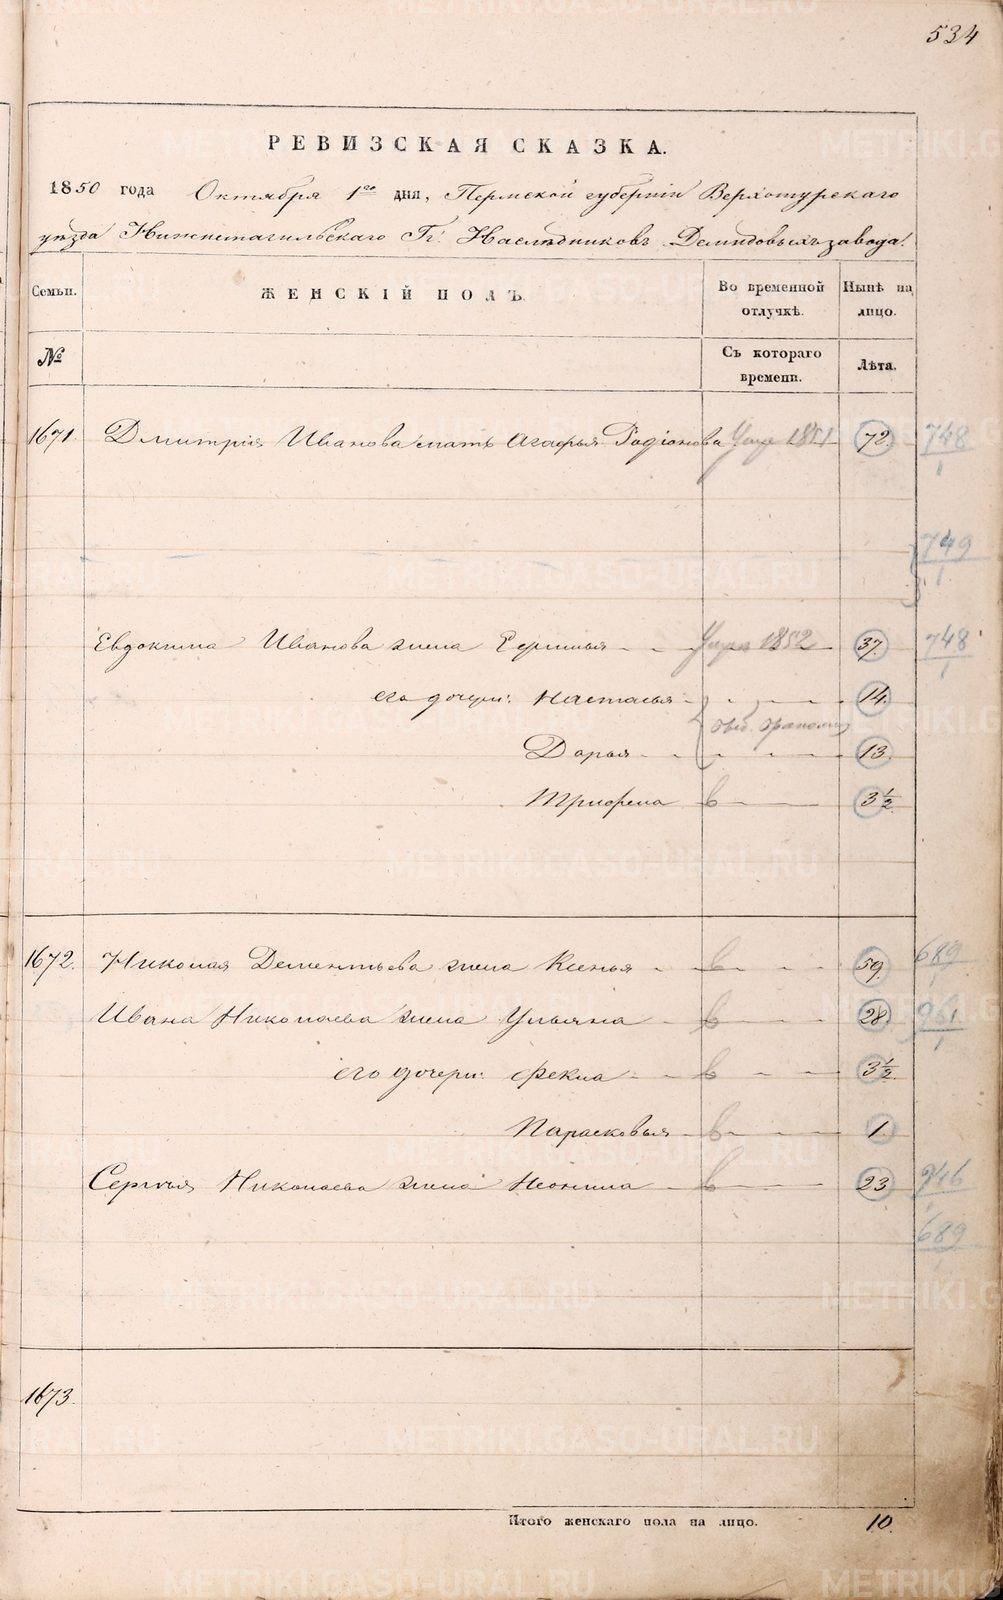 534
РЕВИЗСКАЯ СКАЗКА.
1850 года Октября 1го дня, Пермской губернiи Верхотурскаго
уѣзда Нижнетагильскаго Гг. Наслѣдниковъ Демидовыхъ завода.
Семьи. ЖЕНСКIЙ ПОЛЪ. Во временной отлучкѣ. Нынѣ на лицо.
№ Съ котораго времени. Лѣта.
1671. Дмитрiя Иванова мать Агафья Родiонова 1851 72. 748
1
749
1
Евдокима Иванова жена 1852 37. 748
1
его дочери: Настасья 14.
Дарья 13.
Трифена в 3½
1672. Николая Дементьева жена Ксенья в 59. 689
Ивана Николаева жена Ульяна в 28. 961
1
его дочери: Фекла в 3½
Парасковья в 1.
Сергѣя Николаева жена Неонила в 23 946
689
1673.
Итого женскаго пола на лицо. 10.
METRIKI.GASO-URAL.RU